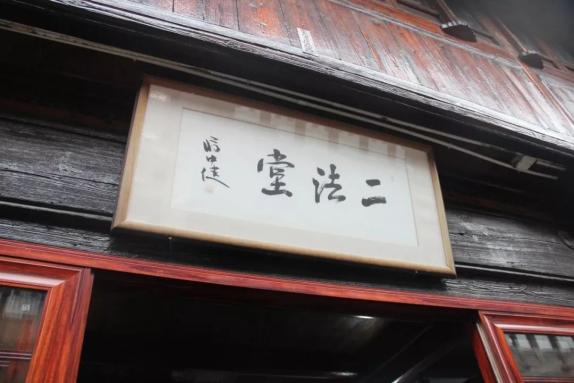 二法堂